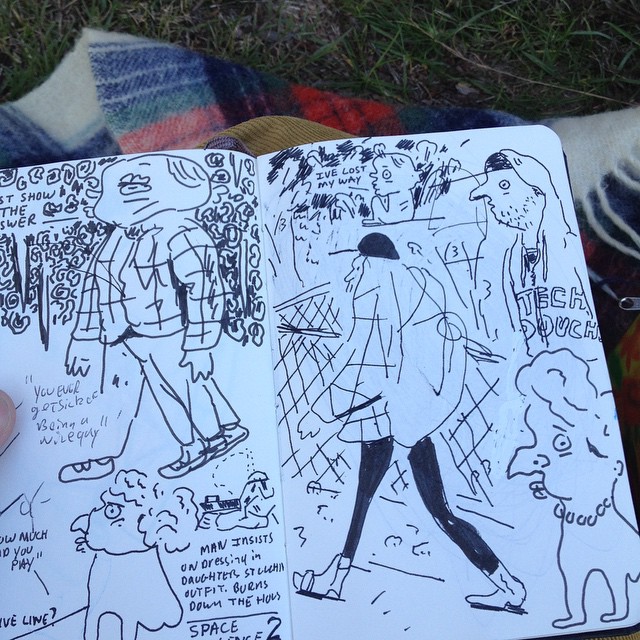 ST SHOW
THE
SWER
"YOU EVER
get sick of
Being a
nice guy"
OW MUCH
D YOU
PAY"
IVE LINE?
MAN INSISTS
ON DRESSING IN
DAUGHTERS
OUTFIT. BURNS
DOWN THE HOUS
SPACE
2
I'VE LOST
MY WAY
TECH
DOUCH